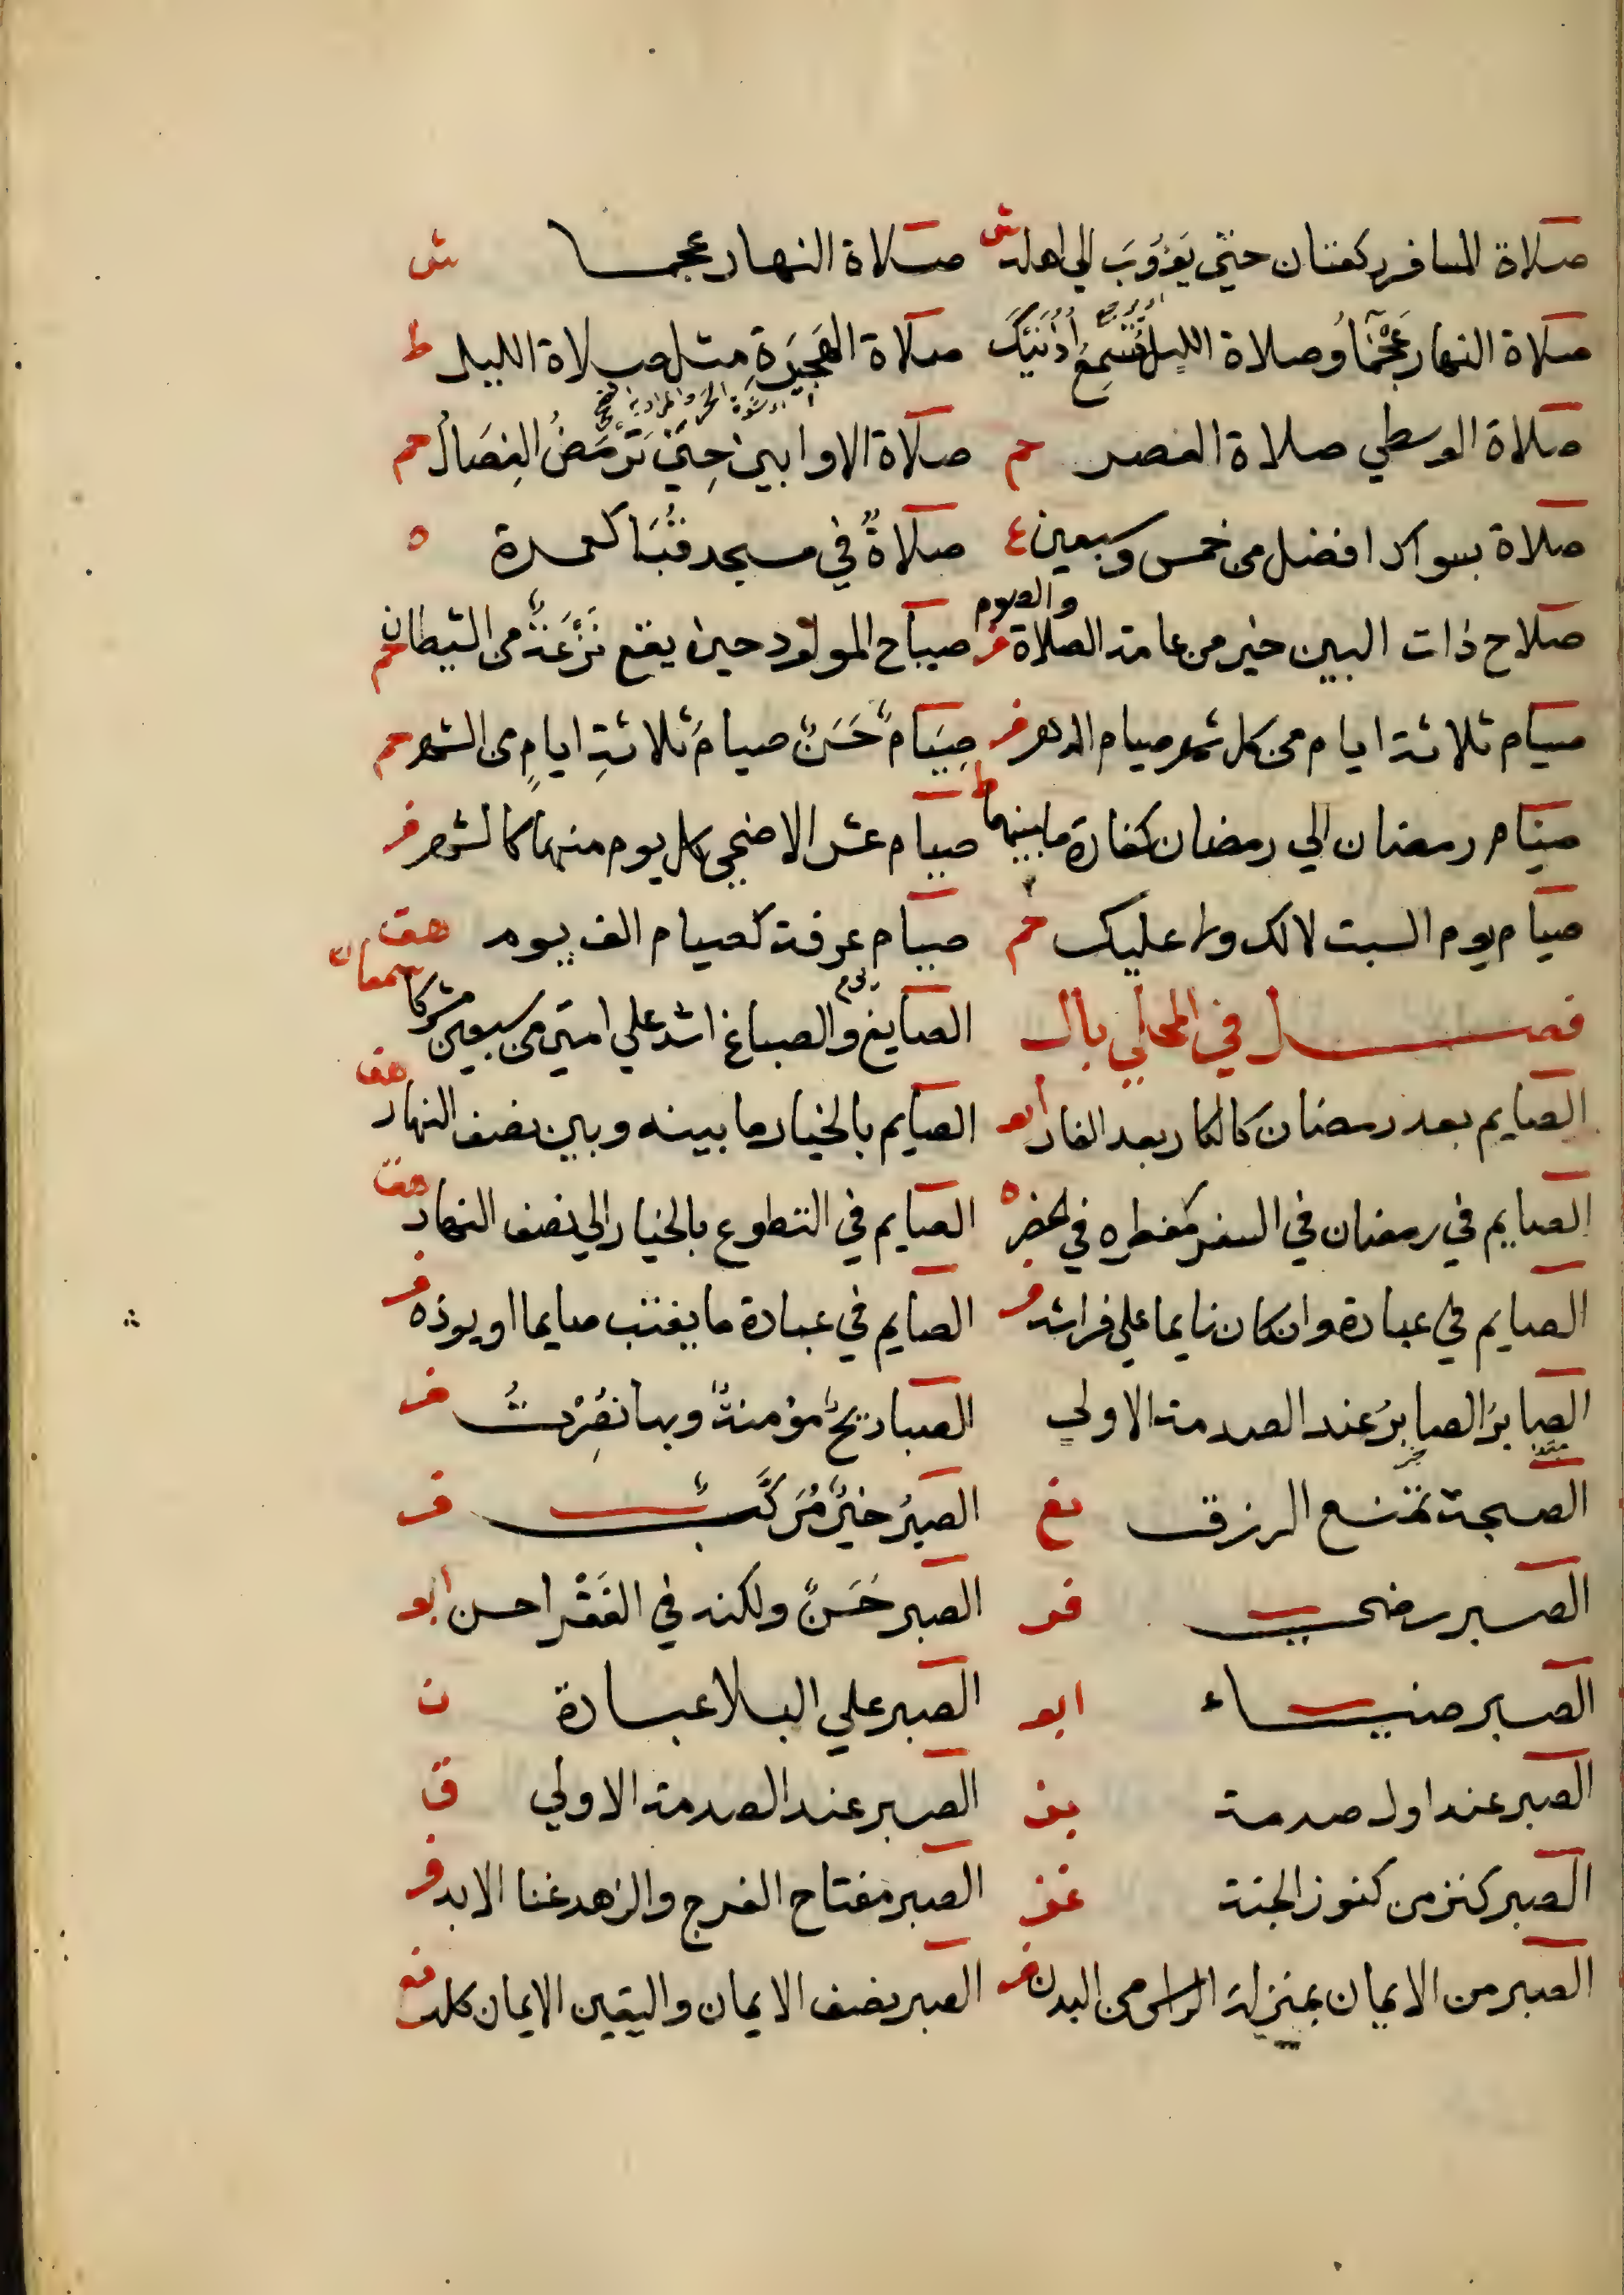 صلاة المسافر ركعتان حتي يَؤُوبَ الي اهله ش صلاة النهار عجما ش
صلاة النهار عَجْمَاُ وصلاة الليل تُسْمِعُ أُذُنَيْكَ صلاة الهَجِيرَةِ مثل صلاة الليل ط
صلاة الوسطي صلاة العصر حم صلاة الاوابين حِينَ تَرْمَضُ الفِصَالُ حم
صلاة بسواك افضل من خمس وسبعين ع صلاةٌ في مسجد قُبَا كعمرة ه
صلاح ذات البين خير من عامة الصلاة والصوم فر صياح المولود حين يقع نَزْغَةٌ من الشيطان حم
صيام ثلاثة ايام من كل شهر صيام الدهر فر صِيَامٌ حَسَنٌ صيامُ ثلاثةِ ايامٍ من الشهر حم
صيام رمضان الي رمضان كفارة ما بينهما ط صيام عشر الاضحي كل يوم منها كالشهر فر
صيام يوم السبت لا لك ولا عليك حم صيام عرفة كصيام الف يوم هق
فصل في المحلي بال الصايغ والصباغ اشد علي امتي من سبعين مشركا سمعان
الصايم بعد رمضان كالكار بعد الفار ابو الصايم بالخيار ما بينه وبين نصف النهار هق
الصايم في رمضان في السفر كمفطره في الحضر ه الصايم في التطوع بالخيار الي نصف النهار هق
الصايم في عبادة وان كان نايما علي فراشه فر الصايم في عبادة ما يغتب صايما او يوذه فر
الصابرُ الصابرُ عند الصدمة الاولي الصبا ريحٌ مؤمنةٌ وبها نُصِرْتُ فر
الصبحة تمنع الرزق نع الصبرُ خيرُ مُرَكَّبٍ ف
الصبر رضي فر الصبر حَسَنٌ ولكنه في الفَقْر احسن ابو
الصبر ضياء ابو الصبر علي البلا عبادة ن
الصبر عند اول صدمة بز الصبر عند الصدمة الاولي ق
الصبر كنز من كنوز الجنة غز الصبر مفتاح الفرج والزهد غنا الابد فر
الصبر من الايمان بمنزلة الراس من البدن فر الصبر نصف الايمان واليقين الايمان كله نع